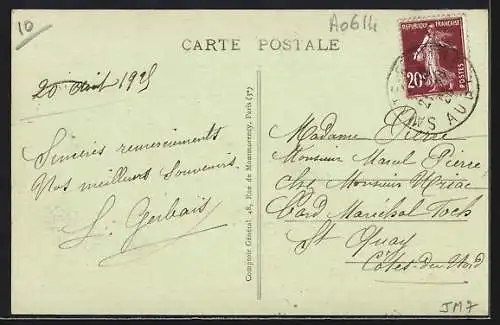 10
A061h
CARTE POSTALE
REPUBLIQUE FRANÇAISE
20c
POSTES
AUB
20 Août 1925
Sincères remerciements
Vos meilleurs souvenirs
L. Gerbais
Comptoir Général, 48, Rue de Montmorency, Paris (3e)
Madame Pierre
Monsieur Marcel Pierre
Chez Monsieur
Bard Maréchal Foch
St Quay
Côtes-du-Nord
JM7